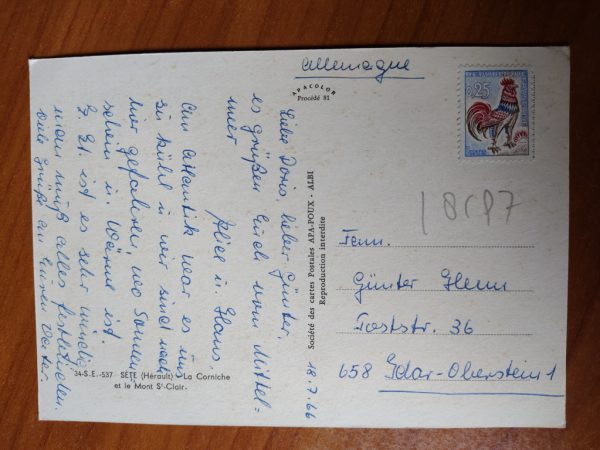 Allemagne
APACOLOR
Procédé 81
0,25
18.7.66
Liebe Doris, lieber Günter,
es grüßen Euch vom Mittel-
meer
u. Hans
Am Atlantik war es uns
zu kühl u. wir sind nach
hier gefahren, wo Sonnen-
schein u. Wärme ist.
Z. Zt. ist es sehr windig
man muß alles festbinden.
Viele Grüße an Euren Vater.
Société des cartes Postales APA-POUX - ALBI
Reproduction interdite
Fam.
Günter
Poststr. 36
658 Idar-Oberstein 1
34-S.E.-537 SÈTE (Hérault) - La Corniche
et le Mont St-Clair-